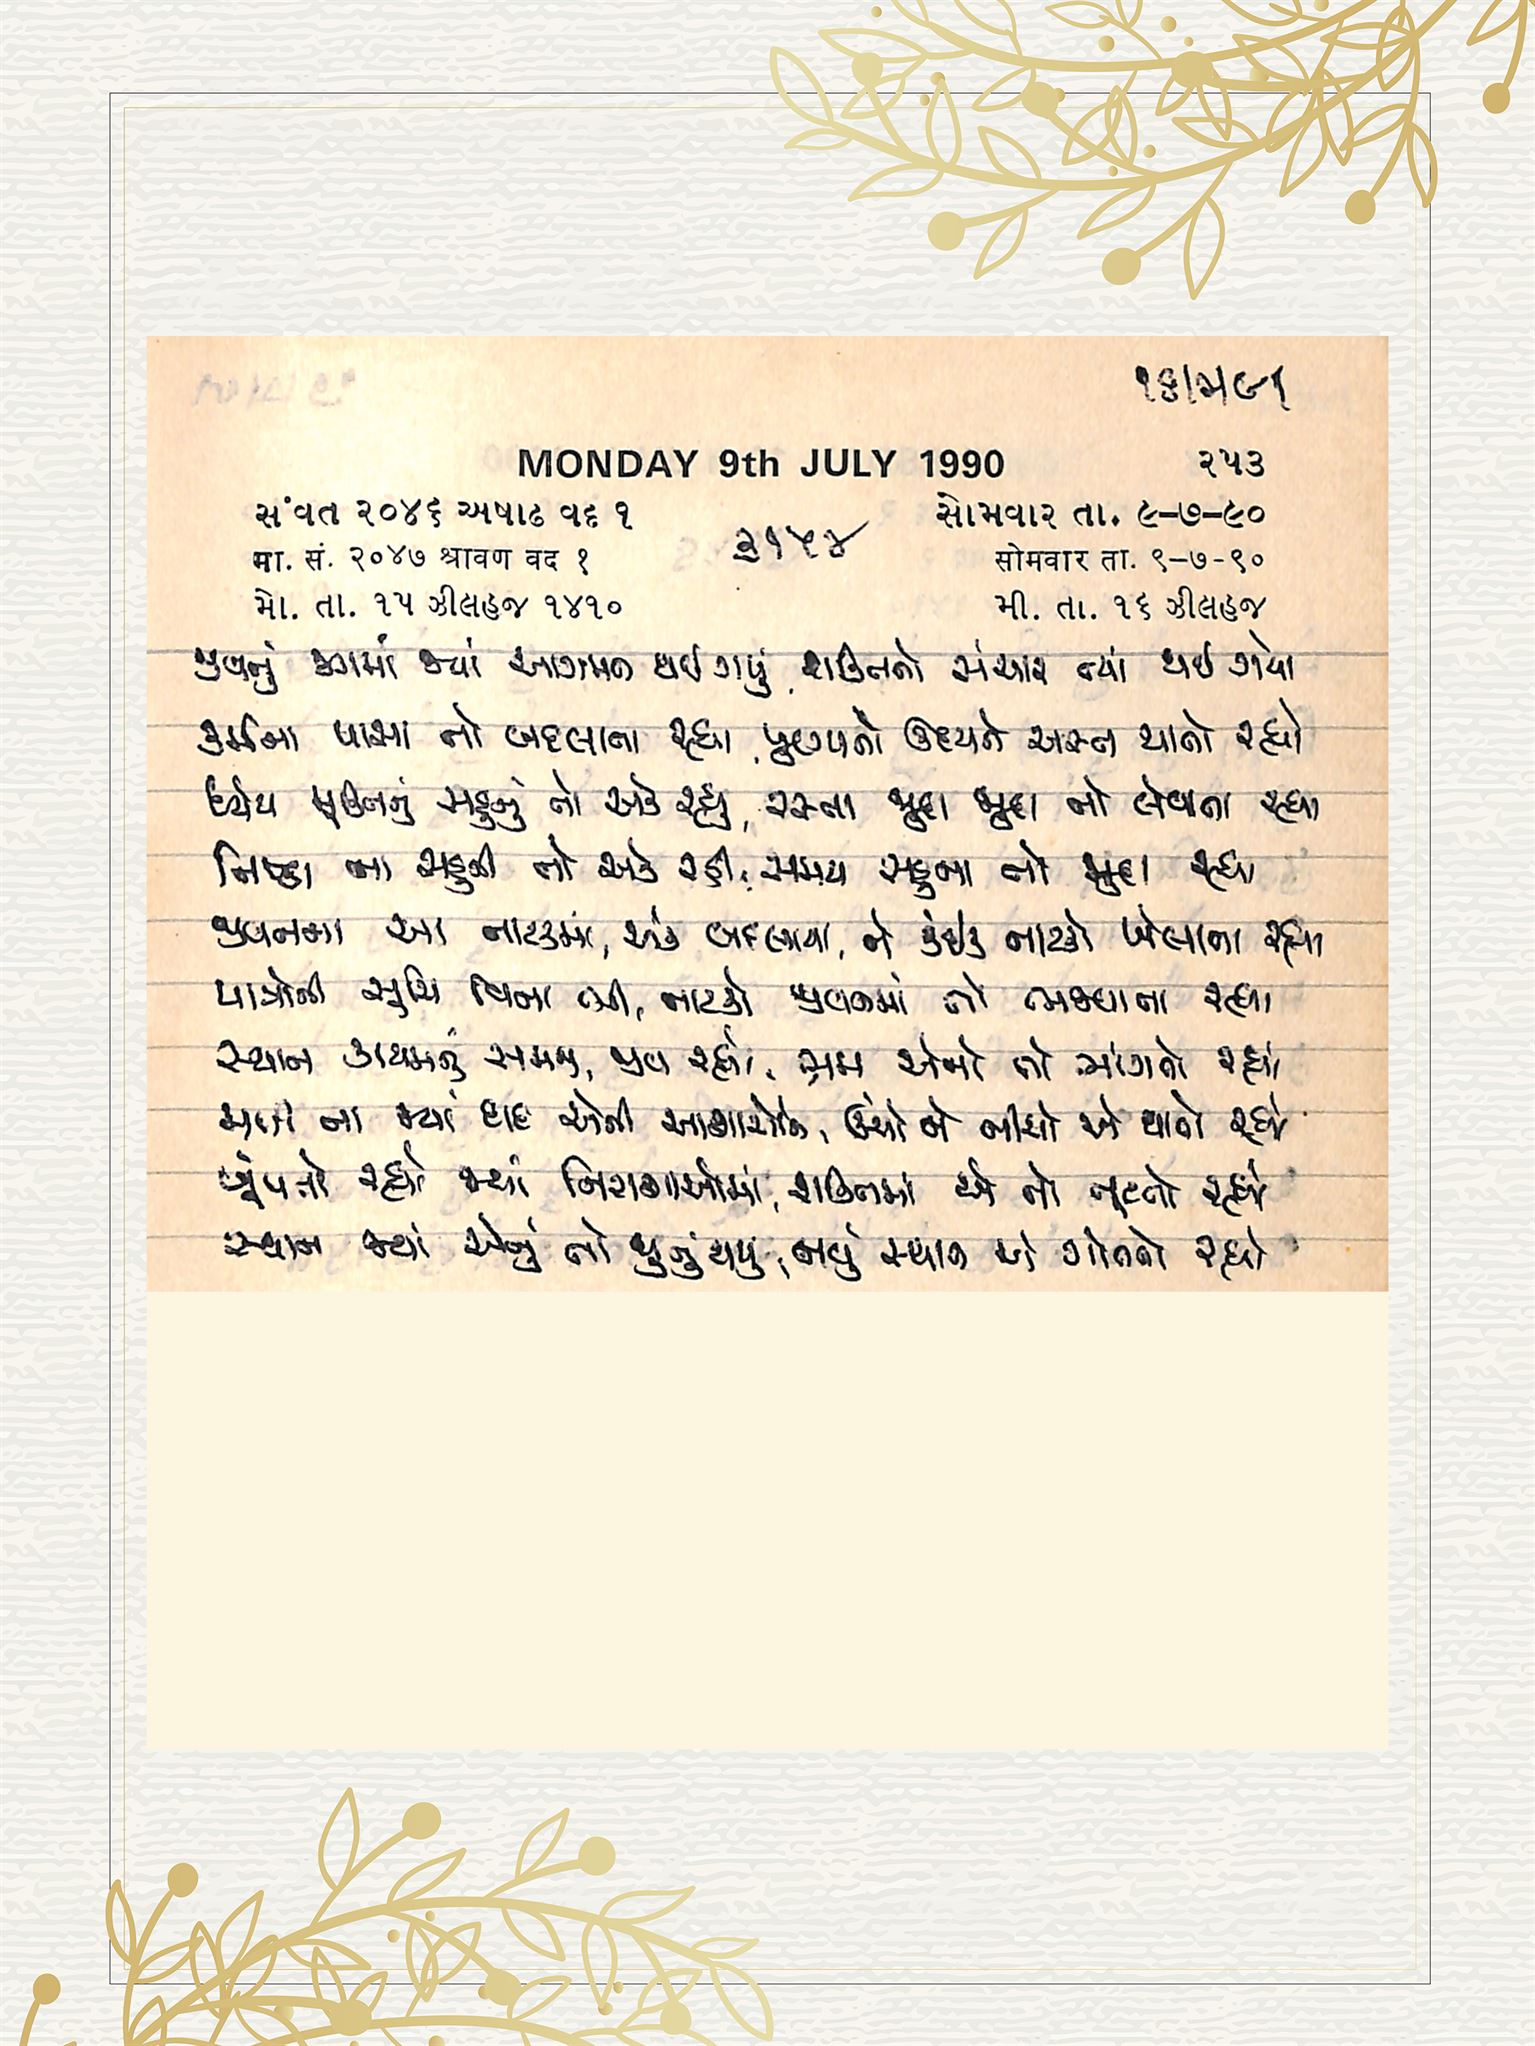 MONDAY 9th JULY 1990 ૨૫૩
સંવત ૨૦૪૬ અષાઢ વદ ૧ સોમવાર તા. ૯-૭-૯૦
૩૧૫૪
मा. सं. २०४७ श्रावण वद १ सोमवार ता. ९-७-९०
મો. તા. ૧૫ ઝીલહજ ૧૪૧૦ મી. તા. ૧૬ ઝીલહજ
જીવનું જગમાં જ્યાં આગમન થઈ ગયું, શક્તિનો સંચાર ત્યાં થઈ ગયો
કર્મના પાસા તો બદલાતા રહ્યા, પૂણ્યનો ઉદયને અસ્ત થાતો રહ્યો
ધ્યેય મુક્તિનું સહુનું તો એક રહ્યું, રસ્તા જુદા જુદા તો લેવાતા રહ્યા
નિષ્ઠા ના સહુની તો એક રહી, સમય સહુના તો જુદા રહ્યા
જીવનના આ નાટકમાં, અંક બદલાયા, ને કંઈક નાટકો ખેલાતા રહ્યા
પાત્રોની સૂચિ વિના ભી, નાટકો જીવનમાં તો ભજવાતા રહ્યા
સ્થાન કાયમનું સમજી, જીવ રહ્યો, એનો તો માંગતો રહ્યો
મળી ના જ્યાં દાદ એની આશાઓને, ઉંચો ને નીચો એ થાતો રહ્યો
ખૂંપતો રહ્યો જ્યાં નિરાશાઓમાં, શક્તિમાં એ તો તૂટતો રહ્યો
સ્થાન જ્યાં એનું તો જુનું થયું, નવું સ્થાન એ ગોતતો રહ્યો